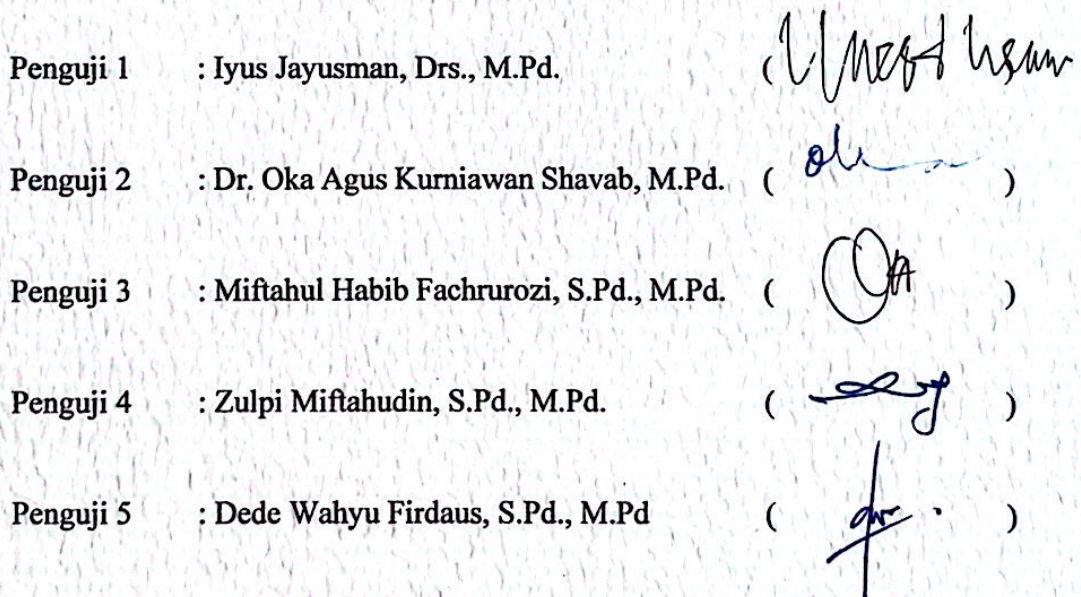 Penguji 1 : Iyus Jayusman, Drs., M.Pd. (
Penguji 2 : Dr. Oka Agus Kurniawan Shavab, M.Pd. ( )
Penguji 3 : Miftahul Habib Fachrurozi, S.Pd., M.Pd. ( )
Penguji 4 : Zulpi Miftahudin, S.Pd., M.Pd. ( )
Penguji 5 : Dede Wahyu Firdaus, S.Pd., M.Pd ( )